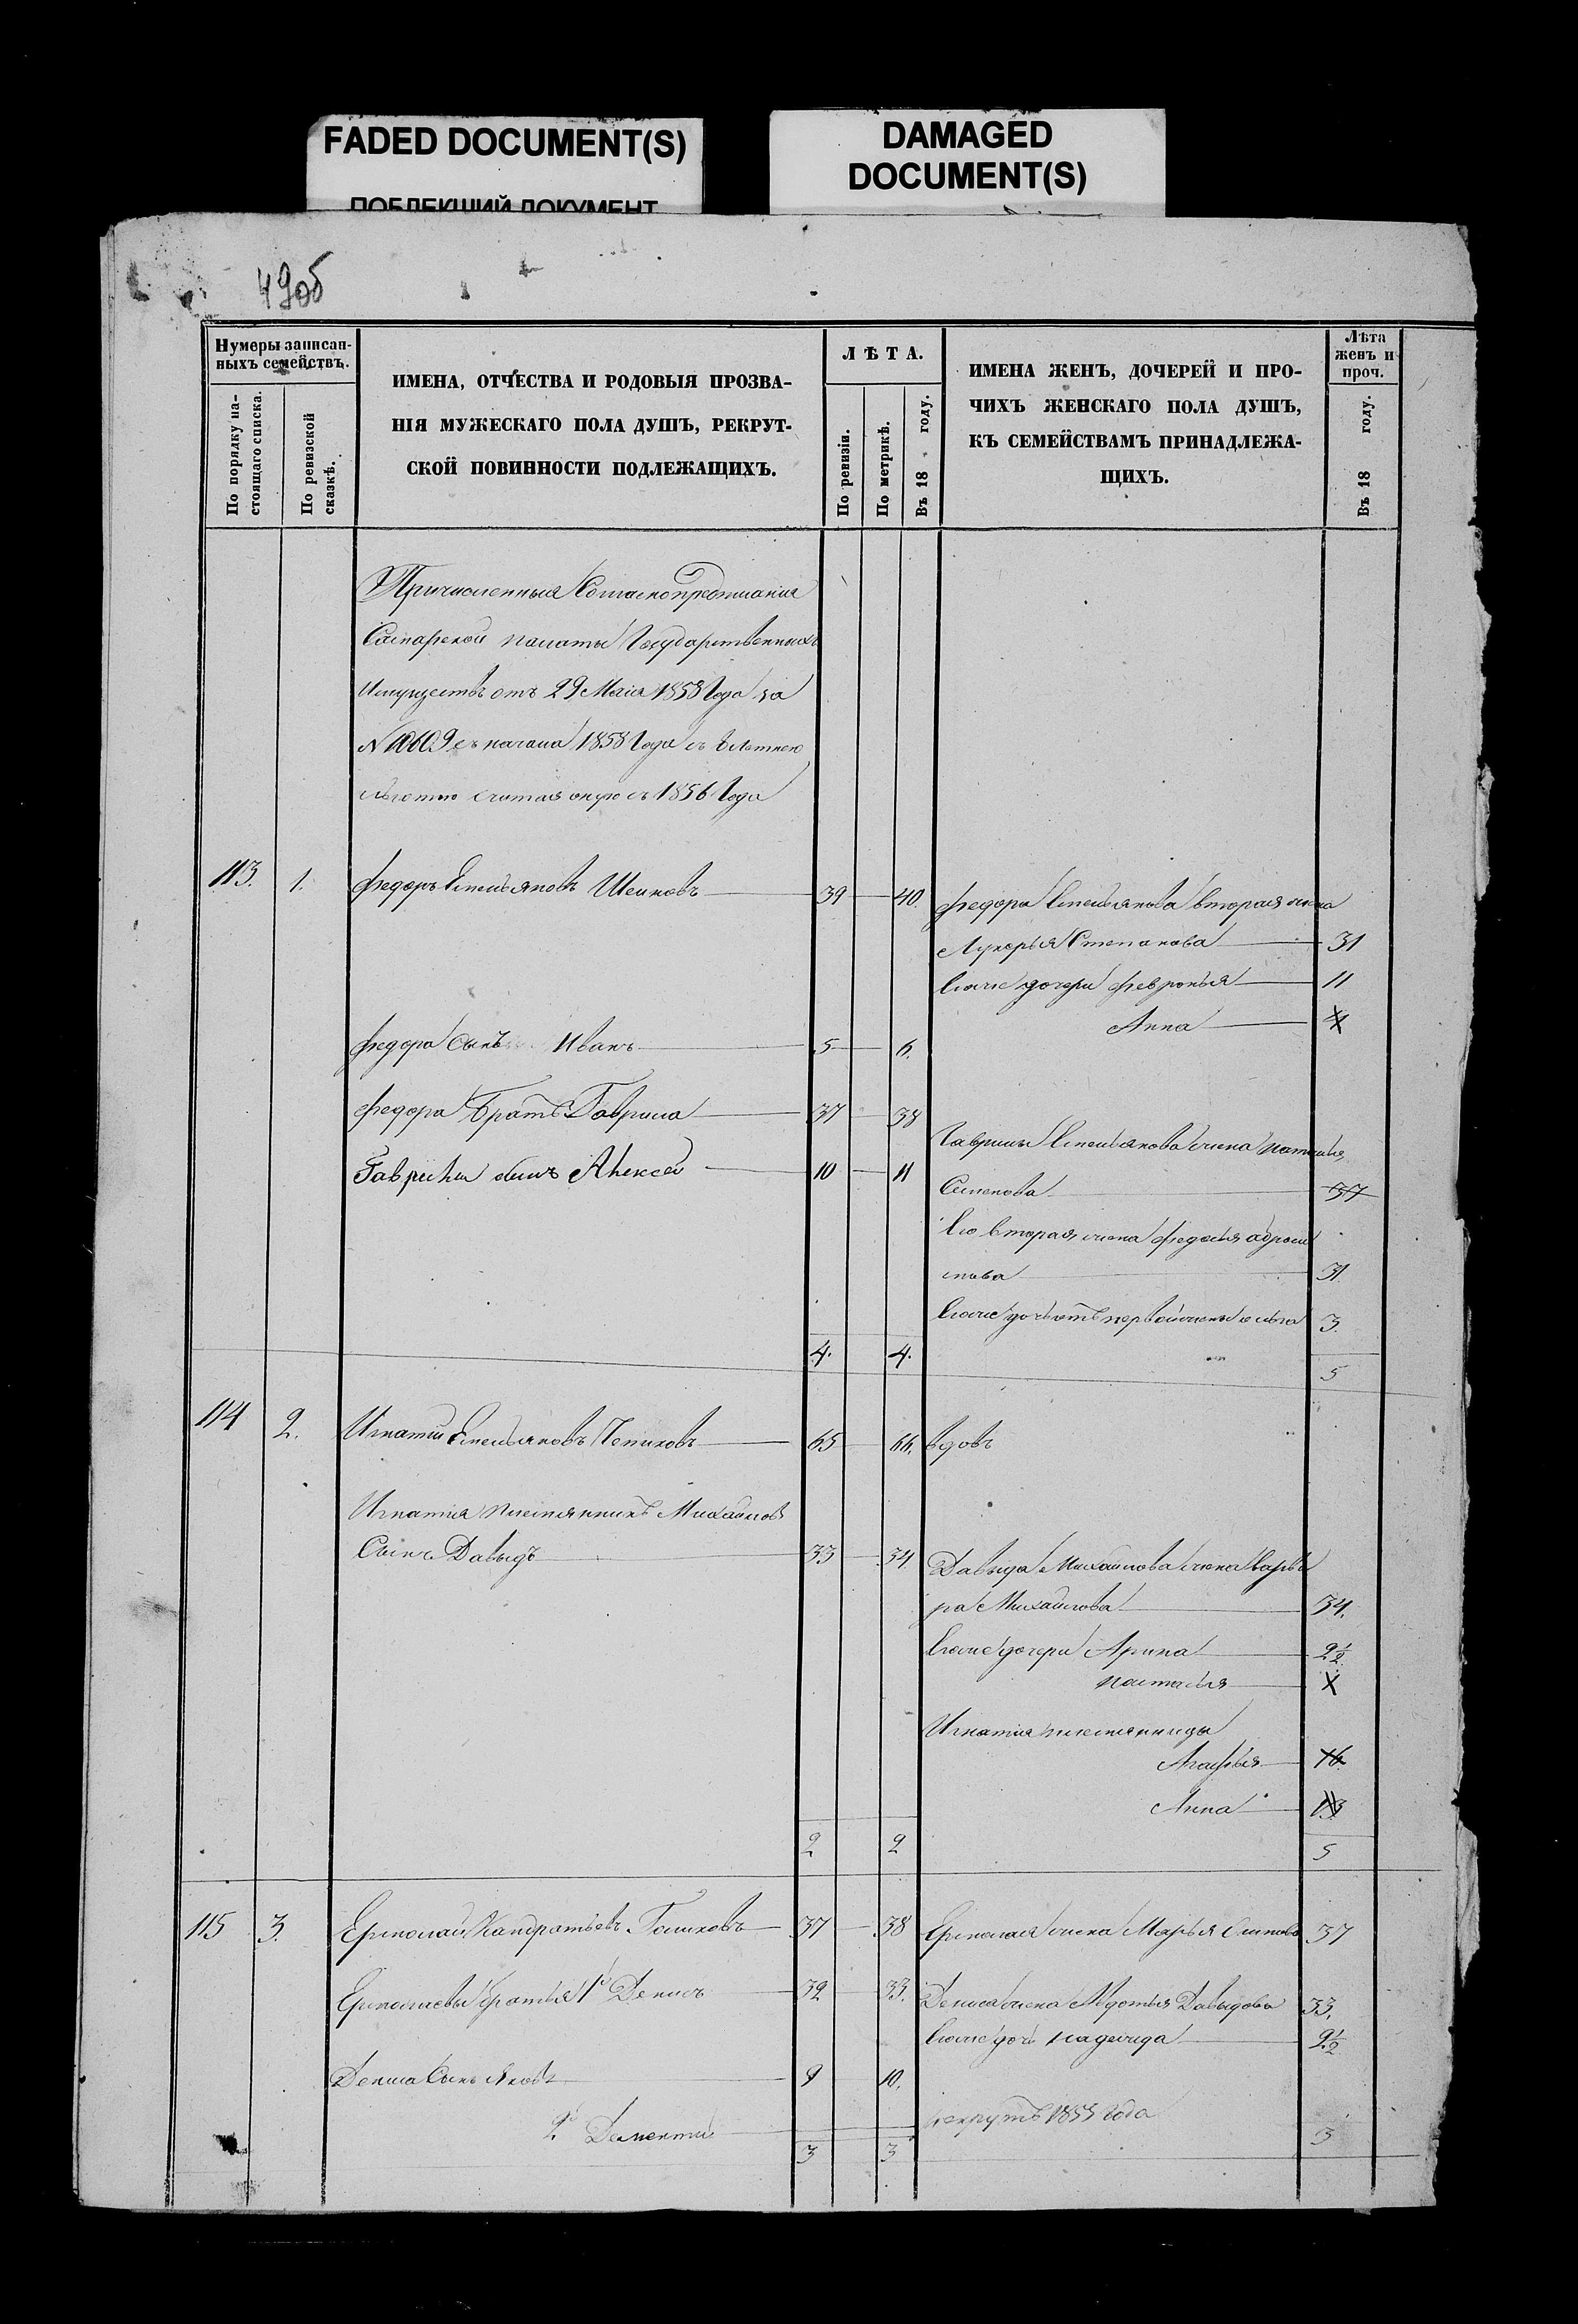 FADED DOCUMENT(S)
ПОБЛЕКШИЙ ДОКУМЕНТ
DAMAGED
DOCUMENT(S)
49об
Нумеры записан-
ныхъ семействъ.
По порядку на-
стоящаго списка.
По ревизской
сказкѣ.
ИМЕНА, ОТЧЕСТВА И РОДОВЫЯ ПРОЗВА-
НІЯ МУЖЕСКАГО ПОЛА ДУШЪ, РЕКРУТ-
СКОЙ ПОВИННОСТИ ПОДЛЕЖАЩИХЪ.
ЛѢТА.
По ревизіи.
По метрикѣ.
Въ 18 году.
ИМЕНА ЖЕНЪ, ДОЧЕРЕЙ И ПРО-
ЧИХЪ ЖЕНСКАГО ПОЛА ДУШЪ,
КЪ СЕМЕЙСТВАМЪ ПРИНАДЛЕЖА-
ЩИХЪ.
Лѣта
женъ и
проч.
Въ 18 году.
Причисленныя Согласно предписания
Самарской палаты Государственныхъ
Имуществъ отъ 29 Маія 1858 Года за
N 10609 съ начала 1858 Года съ летнею
льготою считая оную съ 1856 Года
113. 1. Федоръ Емельяновъ 39 40.
Федора Емельянова вторая жена
Лукерья Степанова 31
Ево же дочери Февронья 11
Анна
Федора Сынъ Иванъ 5 6.
Федора Братъ Гаврила 37 38
Гаврилы Емельянова жена Наталья
Гаврилы сынъ Алексей 10 11
Семенова 37
Ево вторая жена Федосья
31
Ево же дочь отъ первой жены 3.
4. 4. 5
114 2. Игнатий Емельяновъ 65 66. вдовъ
Игнатия племянникъ Михайловъ
Сынъ Давыдъ 33 34
Давыда Михайлова жена Варва
ра Михайлова 34.
Ево же дочери Арина 2½
Настасья
Игнатия племянницы
Агафья 16
Анна 13
2 2 5
115 3. Ермолай Кандратьевъ 37 38 Ермолая жена Марья 37
Ермолаевы братья 1й Денисъ 32 33.
Дениса жена Авдотья Давыдова 33.
Ево же дочь Надежда 2½
Дениса Сынъ Яковъ 9 10.
2й Дементий рекрутъ 1855 года
3 3 3